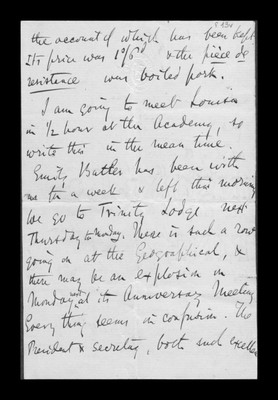 the account of which has been kept
Its price was 1/6d & the pièce de
resistance was boiled pork.
I am going to meet Louisa
in 1/2 hour at the Academy, so
write this in the mean time.
Emily Butler has been with
me for a week & left this morning
We go to Trinity Lodge next
Thursday to Monday. There is such a row
going on at the Geographical, &
there may be an explosion on
Monday next at its Anniversary Meeting
Every thing seems in confusion. The
President & Secretary, both such excellen